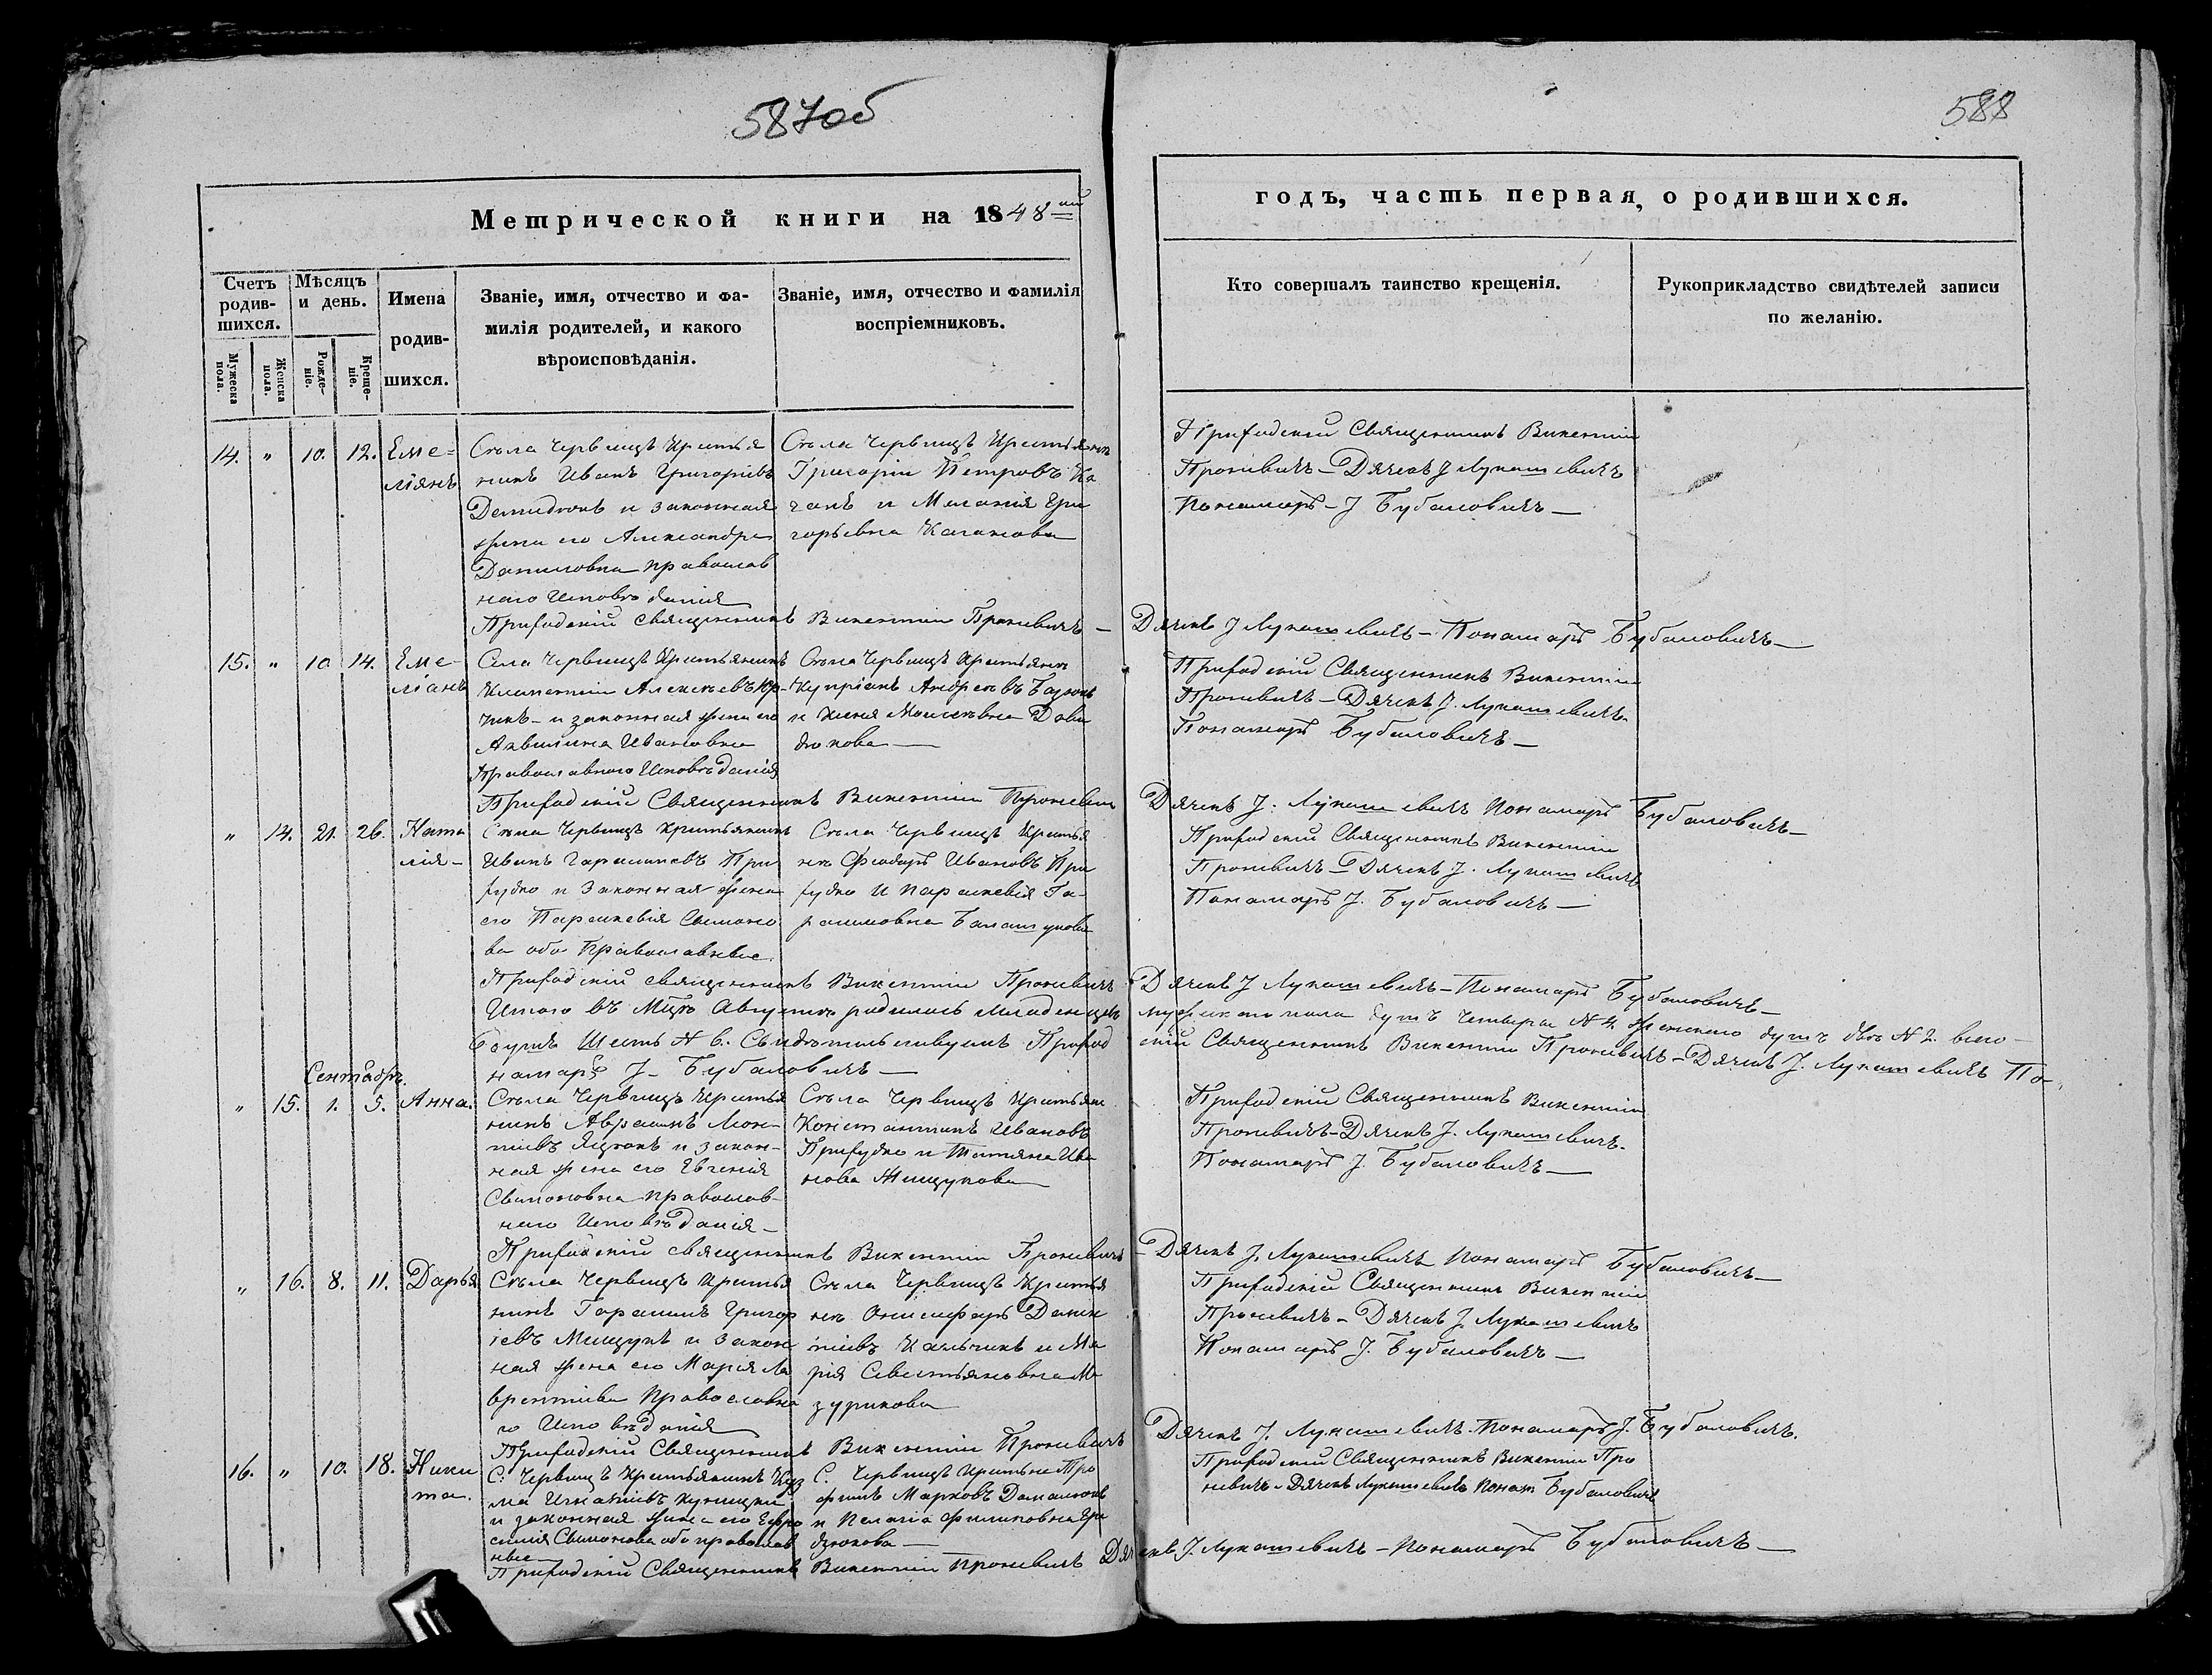 587об
588
Метрической книги на 1848ий
годъ, часть первая, о родившихся.
Счетъ родив-шихся.
Мужеска пола.
Женска пола.
Мѣсяцъ и день.
Рожде-ніе.
Креще-ніе.
Имена
родив-
шихся.
Званіе, имя, отчество и фа-
милія родителей, и какого
вѣроисповѣданія.
Званіе, имя, отчество и фамилія
воспріемниковъ.
Кто совершалъ таинство крещенія.
Рукоприкладство свидѣтелей записи
по желанію.
14. " 10. 12. Еме=
ліянъ
Сѣла Червищъ Крестья
нинъ Иванъ Григоріевъ
Демидюкъ и законная
жена его Александра
Даниловна православ
наго Исповѣданія
Сѣла Червищъ Крестьяне
Григорій Петровъ Ка
ганъ и Меланія Гри
горьевна Каганова
Приходскій Священникъ Викентій
Проневичъ – Дячекъ J Лукашевичъ
Понамарь – J Бубаловичъ –
Приходскій священникъ Викентій Проневичъ – Дячекъ J Лукашевичъ – Понамарь Бубаловичъ –
15. " 10 14. Еме-
ліанъ
Села Червищъ Крестьянинъ
Климентій Алексѣевъ Кр-
чикъ – и законная жена его
Аквилина Ивановна
Православного Исповѣданія
Сѣла Червищъ Крестьяне
Купріянъ Андреевъ
и Ксенія Моисеевна Дави
дюкова –
Приходскій Священникъ Викентій
Проневичъ – Дячекъ J. Лукашевичъ
Понамарь Бубаловичъ –
Приходскій Священникъ Викентій Проневичъ Дячекъ J. Лукашевичъ Понамарь Бубаловичъ –
" 14. 21. 26. Ната
лія –
Сѣла Червищъ Крестьянинъ
Иванъ Гарасимовъ При
ходко и Законная жена
его Параскевія Симоно
ва оба Православные.
Сѣла Червищъ Крестья
не Феодоръ Ивановъ При
ходко и Параскевія Га-
расимовна
Приходскій Священникъ Викентій
Проневичъ – Дячекъ J. Лукашевичъ
Понамарь J. Бубаловичъ –
Приходскій священникъ Викентій Проневичъ Дячекъ J Лукашевичъ – Понамарь Бубаловичъ –
Итого въ Августѣ родилось младенцевъ мужеска пола душъ четыре N 4 женского душъ двѣ N 2. всего –
душъ Шесть N 6. Свидѣтельствуемъ Приход скій Священникъ Викентій Проневичъ – Дячекъ J. Лукашевичъ По-
намарь J – Бубаловичъ –
Сентябрь.
" 15. 1. 5. Анна.
Сѣла Червищъ Крестья
нинъ Авраамъ Леон-
тіевъ Яцюкъ и закон-
ная жена его Евгенія
Симоновна православ-
наго Исповѣданія –
Сѣла Червищъ Крестьяне
Константинъ Ивановъ
Приходко и Татіяна Ива
нова Мищукова
Приходскій Священникъ Викентій
Проневичъ – Дячекъ J. Лукашевичъ.
Понамарь J. Бубаловичъ –
Приходскій священникъ Викентій Проневичъ – Дячекъ J. Лукашевичъ Понамарь Бубаловичъ –
" 16. 8. 11. Дарья
Сѣла Червищъ Крестья
нинъ Гарасимъ Григор
іевъ Мищукъ и закон
ная жена его Марія Ла
врентіева Православна
го Исповѣданія
Сѣла Червищъ Крестья
не Онисифоръ Доми
тіевъ Кальчикъ и Ма
рія Севастьяновна Ма
зурикова
Приходскій Священникъ Викентій
Проневичъ – Дячекъ J. Лукашевичъ
Понамарь J. Бубаловичъ –
Приходскій Священникъ Викентій Проневичъ Дячекъ J. Лукашевичъ Понамарь J. Бубаловичъ.
16. " 10. 18. Ники
та.
С. Червищъ Крестьянинъ Куз
ма Игнатіевъ Куницкій
и законная жена его Ефро
синія Симонова оба православ
ные
С. Червищъ Крестьяне Тро
фимъ Марковъ Домалюкъ
и Пелагія Филиповна Гри
дзюкова –
Приходскій Священникъ Викентій Про
невичъ – Дячекъ Лукашевичъ Понам Бубаловичъ
Приходскій Священникъ Викентій Проневичъ Дячекъ J. Лукашевичъ – Понамарь Бубаловичъ –